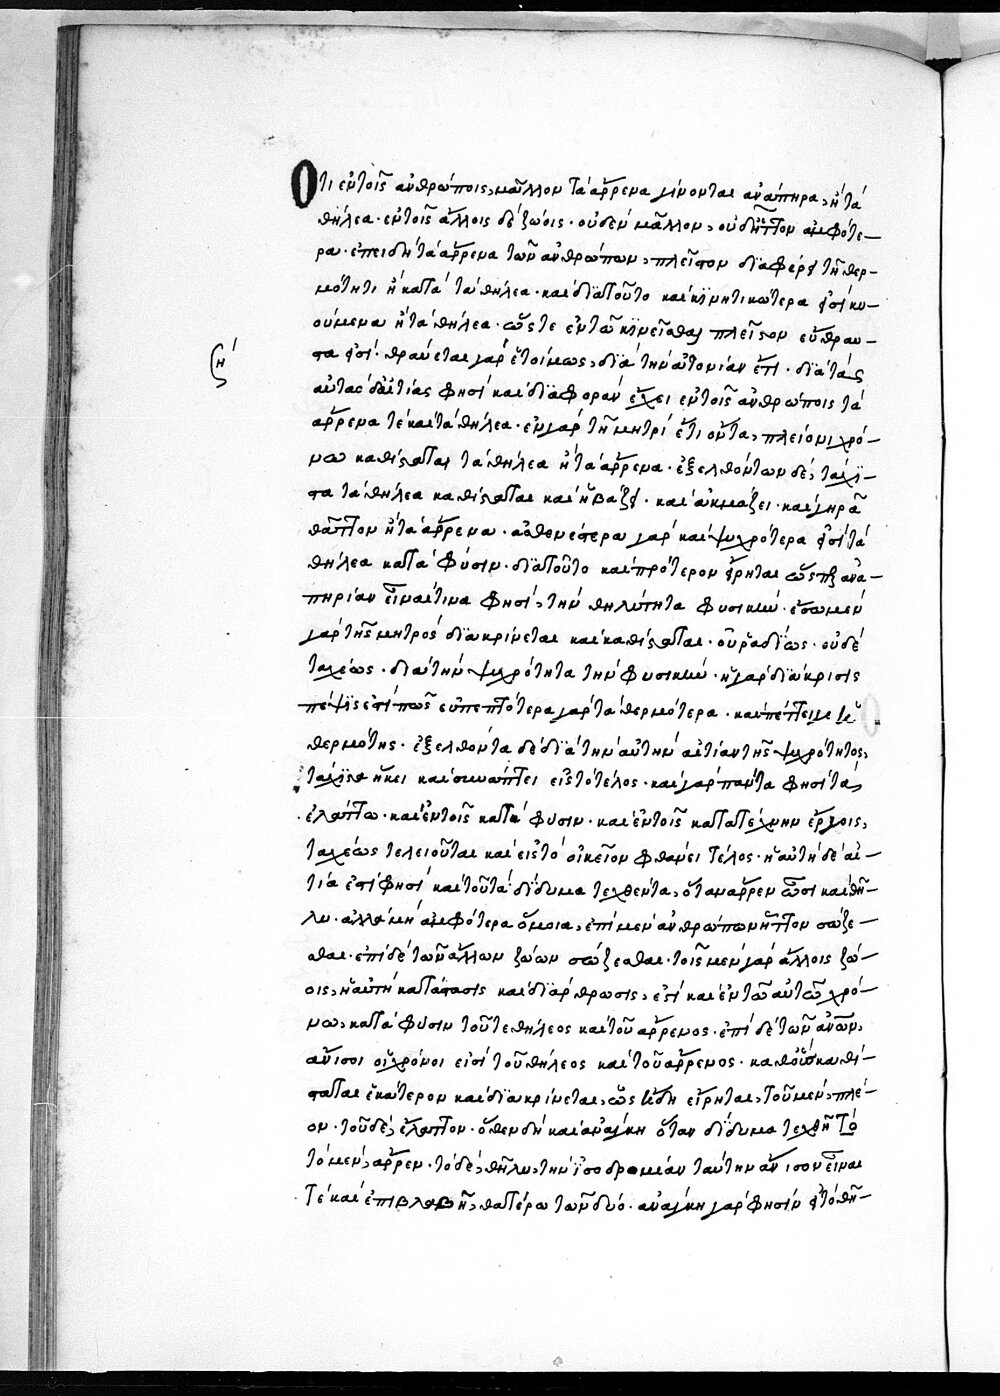 Ὅτι ἐν τοῖς ἀνθρώποις, μᾶλλον τὰ ἄρρενα γίνονται ἀνάπηρα, ἢ τὰ
θήλεα· ἐν τοῖς ἄλλοις δὲ ζώοις· οὐδὲν μᾶλλον, οὐδ' ἧττον ἀμφότε-
ρα· ἐπειδὴ τὰ ἄρρενα τῶν ἀνθρώπων, πλεῖστον διαφέρει τῇ θερ-
μότητι ἢ κατὰ τὰ θήλεα· καὶ διατοῦτο καὶ κινητικώτερα εἰσὶ κυ-
ούμενα ἢ τὰ θήλεα· ὥστε ἐν τῶ κινεῖσθαι πλεῖστον εὔθραυ-
στα εἰσί· θραύεται γὰρ ἑτοίμως, διὰ τὴν ἀτονίαν ἔτι· διὰ τὰς
ζη
αὐτὰς δ' αἰτίας φησὶ καὶ διαφορὰν ἔχει ἐν τοῖς ἀνθρώποις τὰ
ἄρρενα τὲ καὶ τὰ θήλεα· ἐν γὰρ τῇ μητρὶ ἔτι ὄντα, πλείονι χρό-
νω καθίσταται τὰ θήλεα ἢ τὰ ἄρρενα· ἐξελθόντων δὲ, τάχι-
στα τὰ θήλεα καθίσταται καὶ ἡβάζει· καὶ ἀκμάζει· καὶ γηρᾶ
θᾶττον ἢ τὰ ἄρρενα· ἀσθενέστερα γὰρ καὶ ψυχρότερα εἰσὶ τὰ
θήλεα κατὰ φύσιν· διατοῦτο καὶ πρότερον εἴρηται ὥσπερ ἀνα-
πηρίαν εἶναι τινα φησὶ, τὴν θηλύτητα φυσικήν· ἔσω μὲν
γὰρ τῆς μητρὸς διακρίνεται καὶ καθίσταται· οὐ ῥαδίως· οὐδὲ
ταχέως· διὰ τὴν ψυχρότητα τὴν φυσικήν· ἡ γὰρ διάκρισις
πέψις ἐστί πως εὐπεπτότερα γὰρ τὰ θερμότερα· καὶ πέττει
θερμότης· ἐξελθόντα δὲ διὰ τὴν αὐτὴν αἰτίαν τῆς ψυχρότητος,
τάχιστα ἥκει καὶ συνάπτει εἰς τὸ τέλος· καὶ γὰρ πάντα φησὶ τὰ
ἐλάττω· καὶ ἐν τοῖς κατὰ φύσιν· καὶ ἐν τοῖς κατὰ τέχνην ἔργοις,
ταχέως τελειοῦται καὶ εἰς τὸ οἰκεῖον φθάνει τέλος· ἡ αὐτὴ δὲ αἰ-
τία ἐστὶ φησὶ καὶ τοῦ τὰ δίδυμα τεχθέντα, ὅταν ἄρρεν ὦσι καὶ θῆ-
λυ· ἀλλὰ μὴ ἀμφότερα ὅμοια, ἐπὶ μὲν ἀνθρώπων ἧττον σώζε-
σθαι· ἐπὶ δὲ τῶν ἄλλων ζώων σώζεσθαι· τοῖς μὲν γὰρ ἄλλοις ζώ-
οις, ἡ αὐτὴ κατάστασις καὶ διάρθρωσις, ἐστὶ καὶ ἐν τῶ αὐτῶ χρό-
νω, κατὰ φύσιν τοῦ τε θήλεος καὶ τοῦ ἄρρενος· ἐπὶ δὲ τῶν ἀνων,
ἄνισοι οἱ χρόνοι εἰσὶ τοῦ θήλεος καὶ τοῦ ἄρρενος· καθ' οὓς καθί-
σταται ἑκάτερον καὶ διακρίνεται, ὡς ἤδη εἴρηται, τοῦ μὲν, πλέ-
ον· τοῦ δὲ, ἔλαττον· ὅθεν δὴ καὶ ἀνάγκη ὅταν δίδυμα τεχθῇ τὸ
τὸ μὲν, ἄρρεν· τὸ δὲ, θῆλυ, τὴν ἰσοδρομίαν ταύτην ἄνισον εἶναι
τὲ καὶ ἐπιβλαβῆ, θατέρω τῶν δυό· ἀνάγκη γὰρ φησὶν εἰ τὸ θῆ-